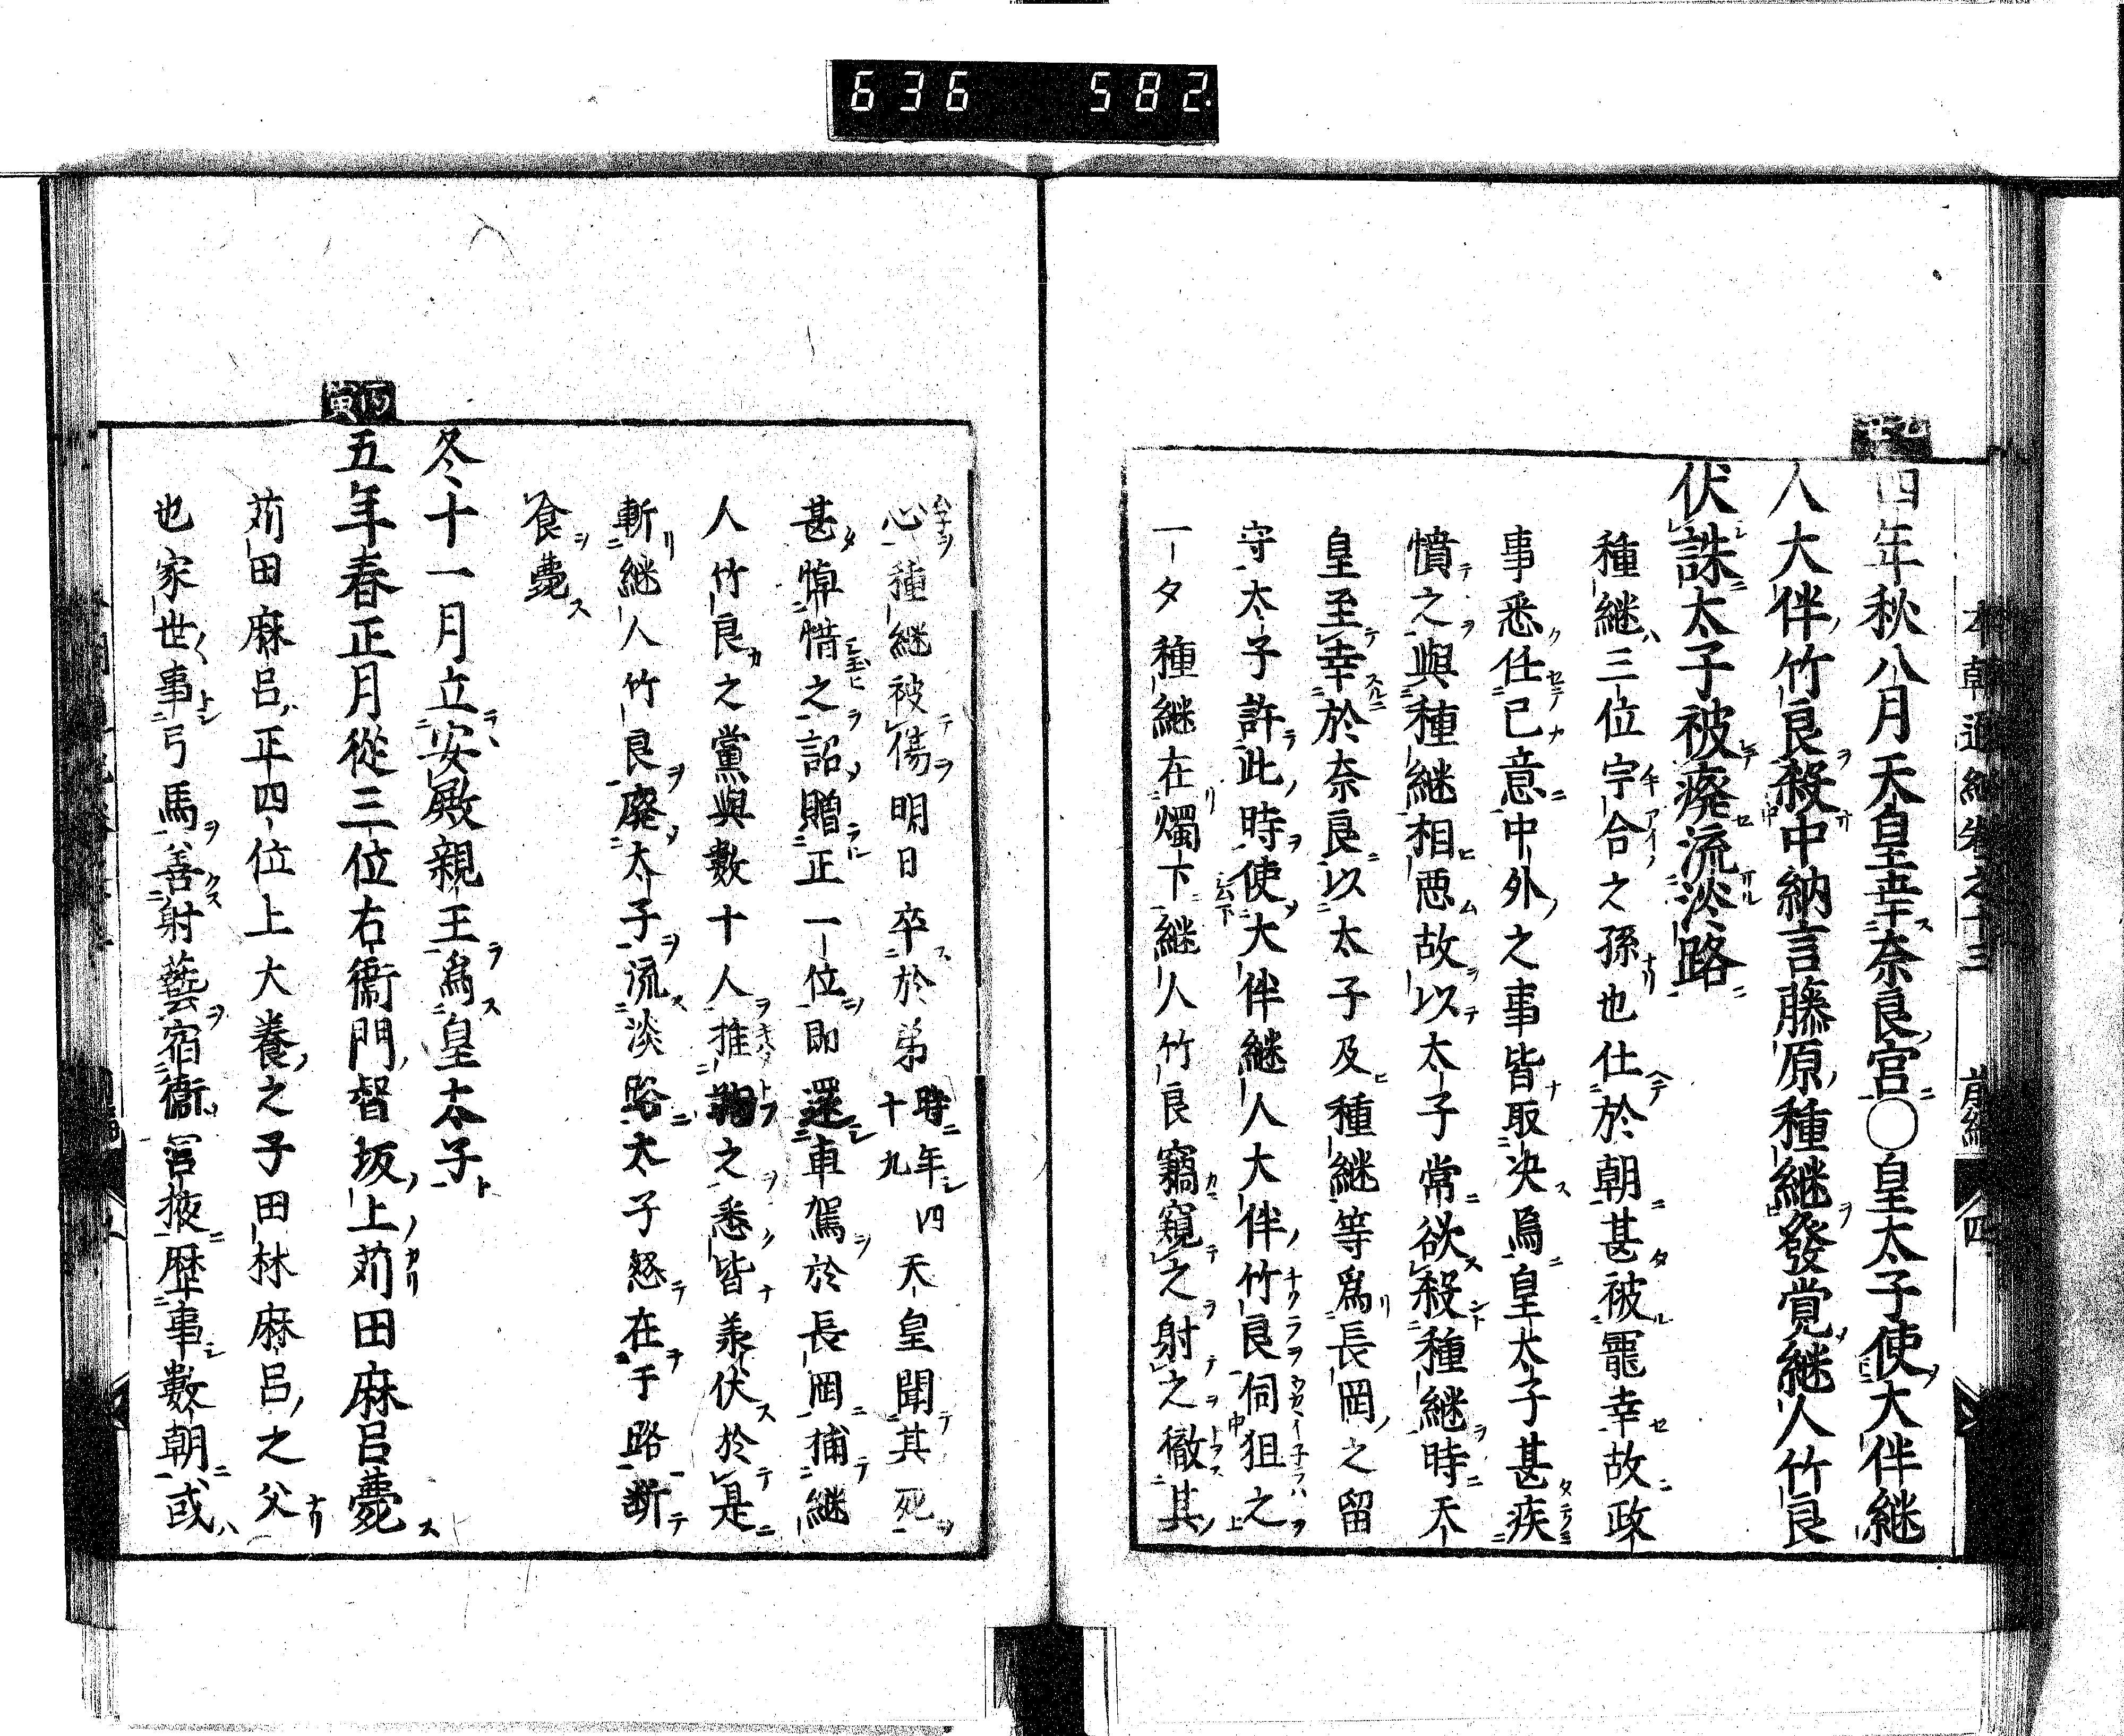 636 582
本朝通紀卷之十三 前編 四
乙丑
四年秋八月天皇幸奈良宮○皇太子使大伴継
人大伴竹良殺中納言藤原種継發覚継人竹良
伏誅太子被廢流淡路
種継三位宇合之孫也仕於朝甚被寵幸故政
事悉任己意中外之事皆取決焉皇太子甚疾
憤之與種継相惡故以太子常欲殺種継時天
皇至幸於奈良以太子及種継等爲長岡之留
守太子許此時使大伴継人大伴竹良伺狙之
一夕種継在燭下継人竹良竊窺之射之徹其
心種継被傷明日卒於弟時年四十九天皇聞其死
甚悼惜之詔贈正一位即還車駕於長岡捕継
人竹良之黨與數十人推鞫之悉皆承伏於是
斬継人竹良廢太子流淡路太子怒在于路断
食薨
冬十一月立安殿親王爲皇太子
丙寅
五年春正月從三位右衞門督坂上苅田麻呂薨
苅田麻呂正四位上大養之子田林麻呂之父
也家世事弓馬善射藝宿衞宮掖歴事數朝或